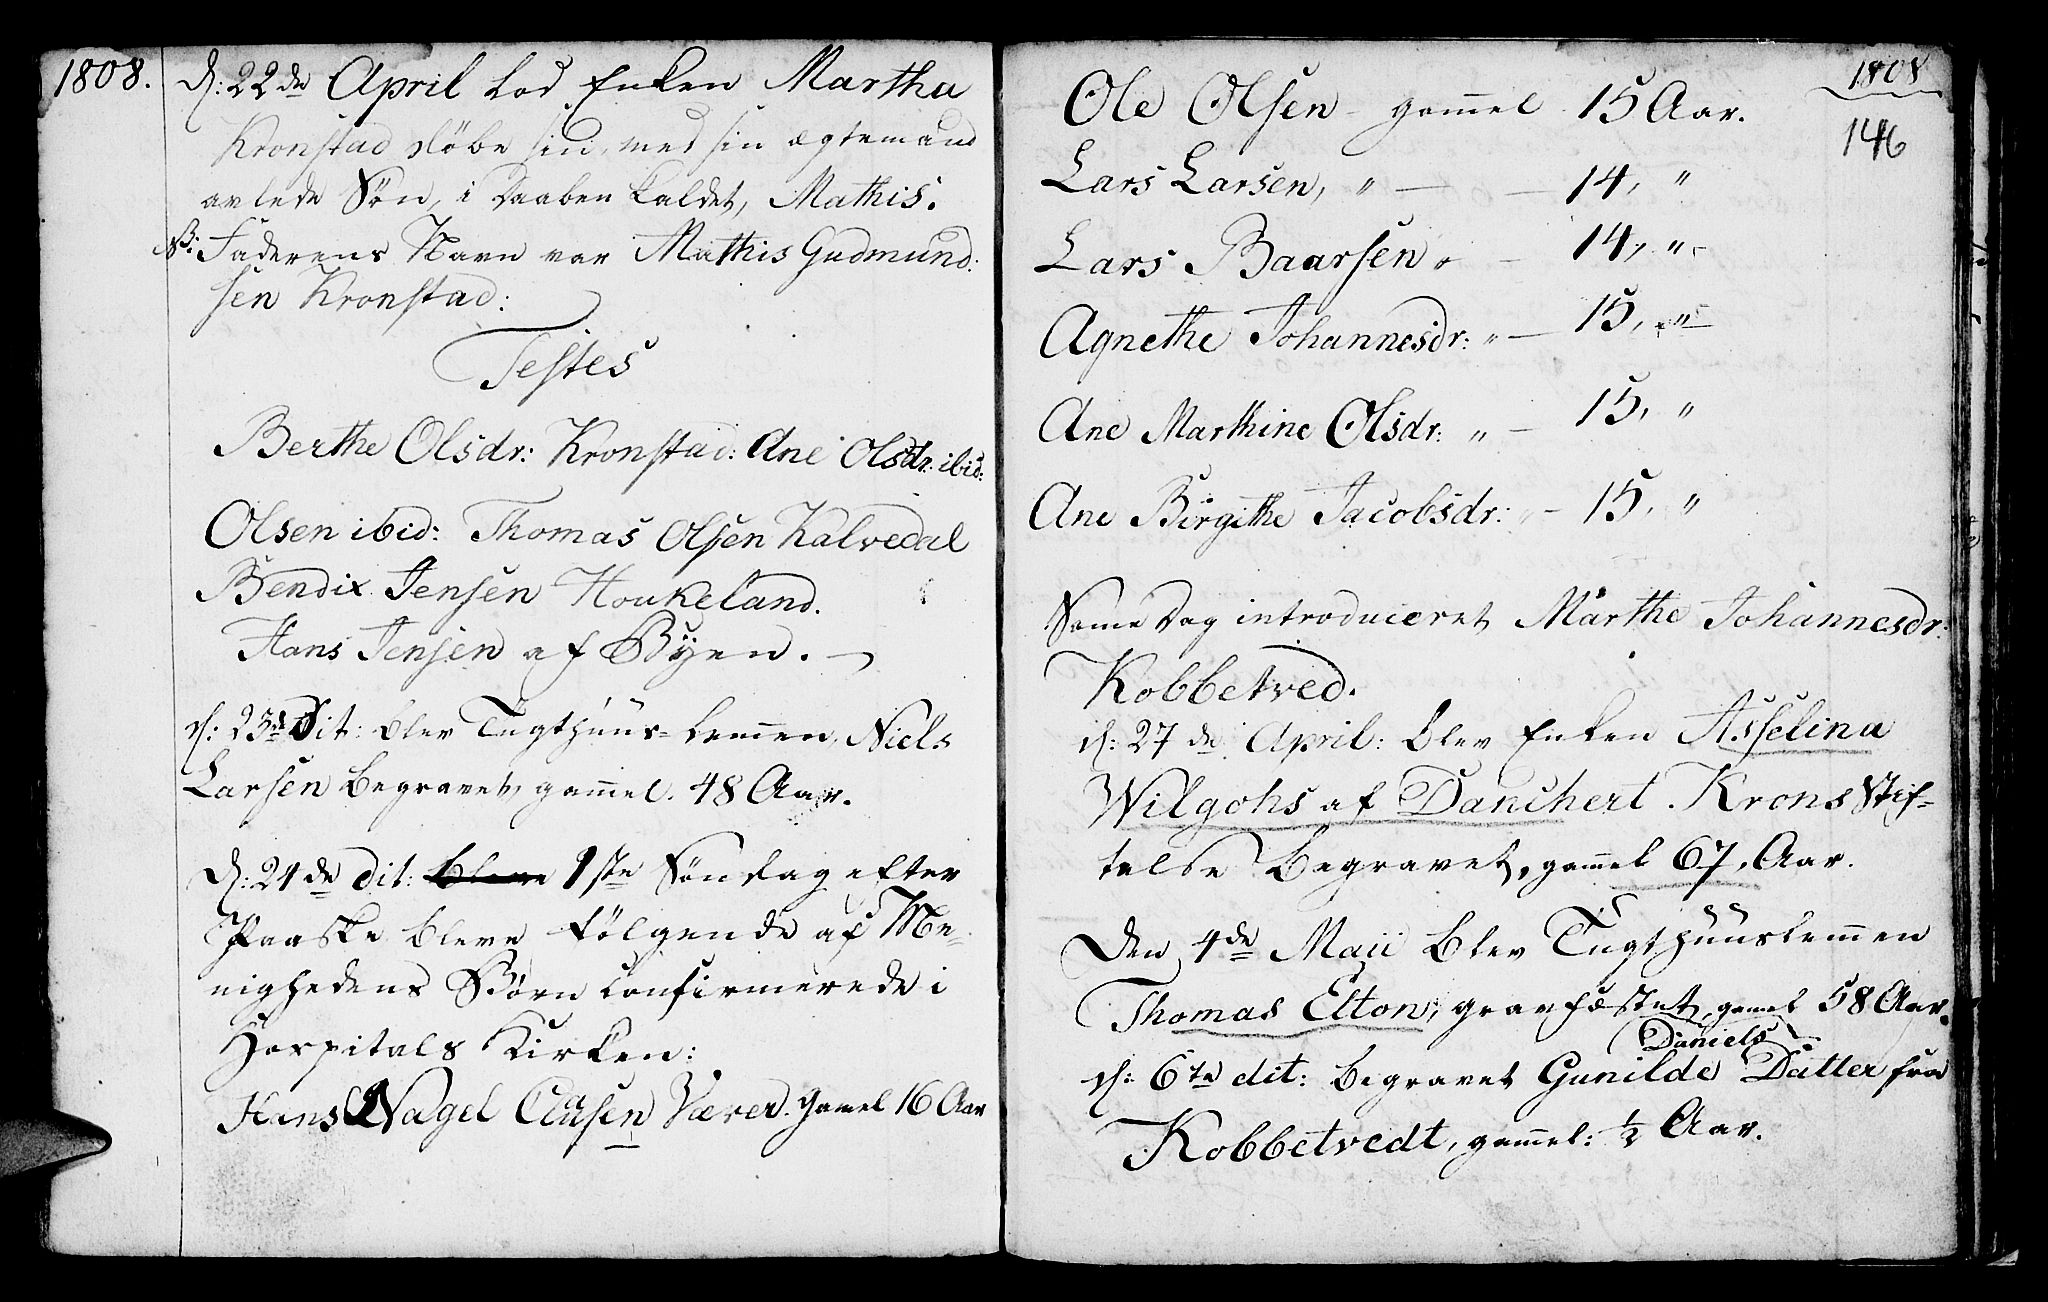 1808.
d: 22de April lod Enken Martha
Kronstad döbe sin, med sin ægtemand
avlede Sön, i Daaben kaldet, Mathis.
NB: Faderens Navn var Mathis Gudmund:
sen Kronstad:
Testes
Berthe Olsdr: Kronstad: Ane Olsdr. ibid:
Olsen ibid: Thomas Olsen Kalvedal
Bendix Jensen Houkeland.
Hans Jensen af Byen. —
d: 23de Dit: blev Tugthuus-Lemen, Niels
Larsen begravet, gamel. 48 Aar.
D: 24de dit: bleve 1ste Söndag efter
Paaske bleve fölgende af Me-
nighedens Börn confirmerede i
Hospitals Kirken:
Hans Nagel Clasen Værer. gamel 16 Aar
1808
146
Ole Olsen - gamel 15 Aar.
Lars Larsen, " — - 14, "
Lars Baarsen " - 14, "
Agnethe Johannesdr: " — 15, "
Ane Marthine Olsdr: " — 15, "
Ane Birgithe Jacobsdr: " - 15, "
Same Dag introduceret Marthe Johannesdr:
Kobbetved.
d: 27de April: blev Enken Asselina
Wilgohs af Danchert Krons Stif-
telse begravet, gamel 67, Aar.
Den 4de Maii blev Tugthuuslemen
Thomas Elton, gravfæstet, gamel 58 Aar.
Daniels
d: 6te dit: begravet Gunilde Datter fra
Kobbetvedt, gamel: 1/2 Aar.